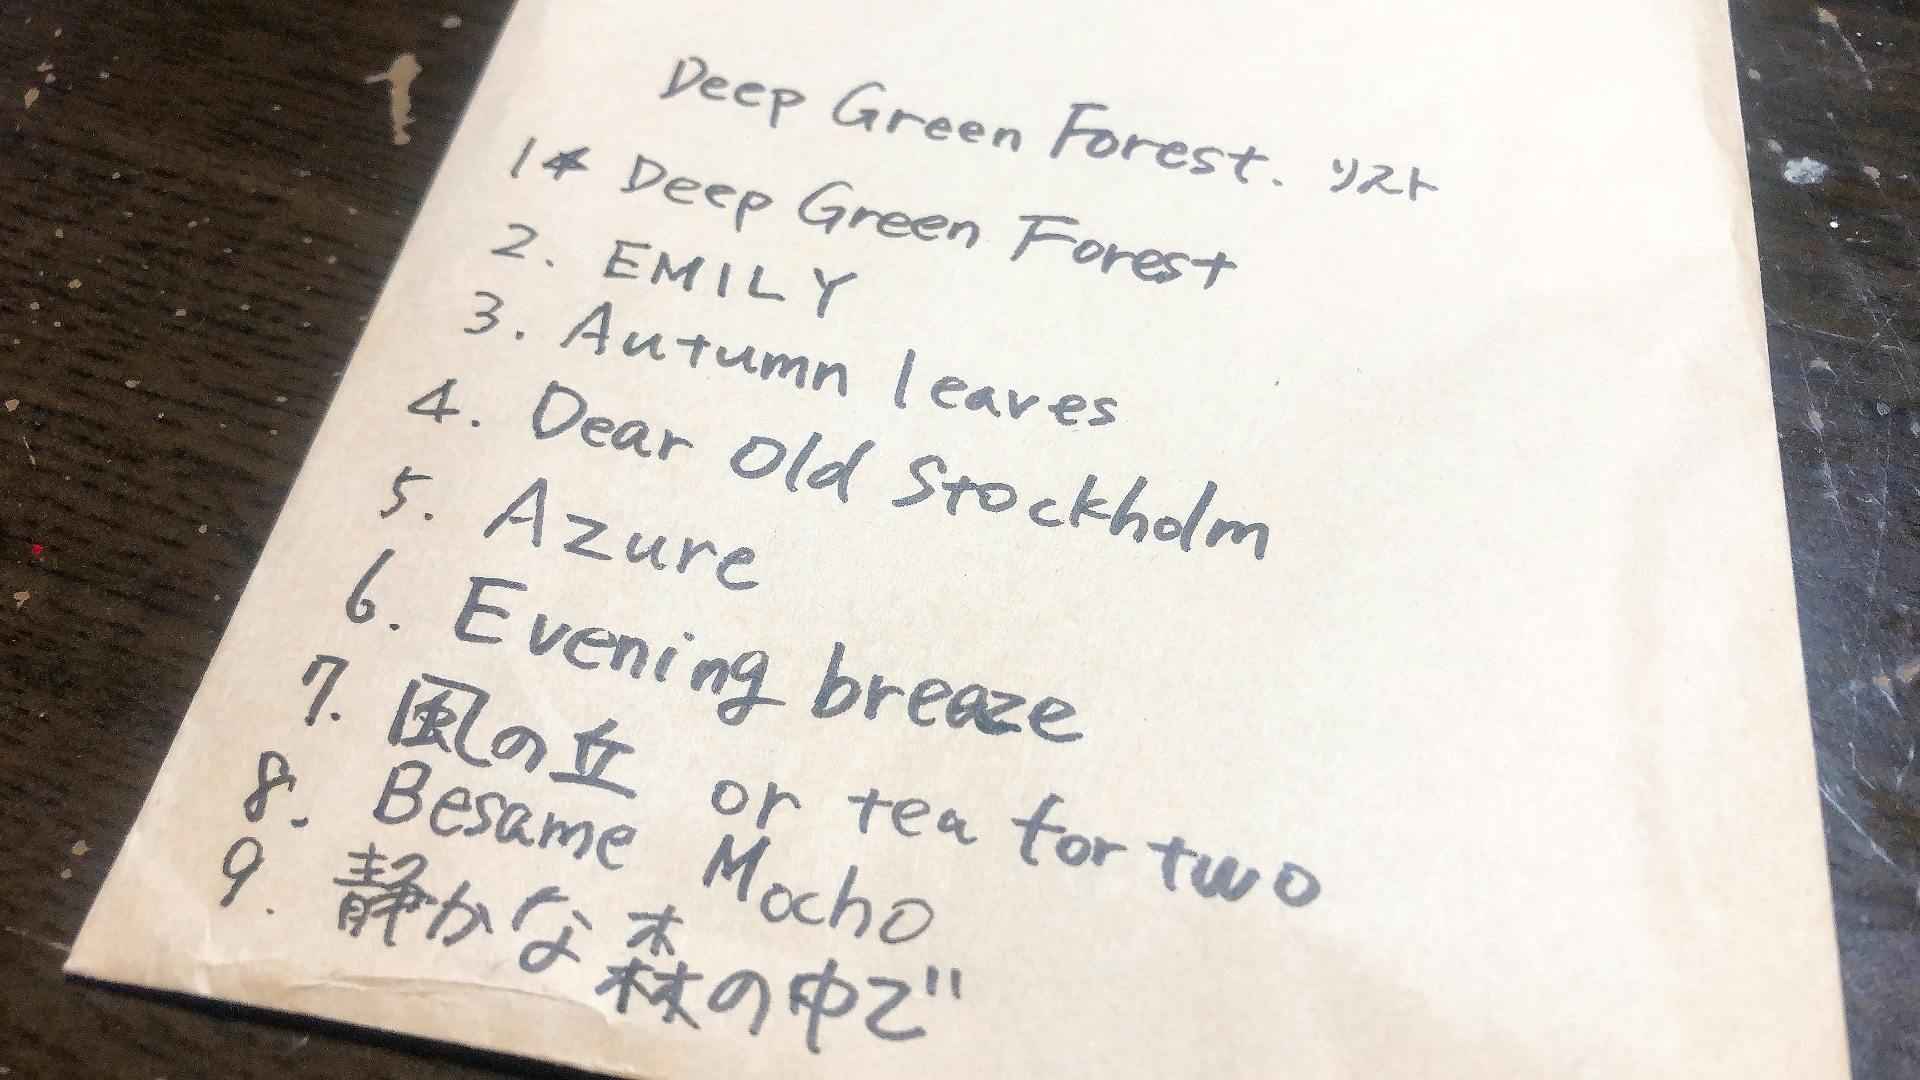 Deep Green Forest. リスト
1* Deep Green Forest
2. EMILY
3. Autumn leaves
4. Dear Old Stockholm
5. Azure
6. Evening breaze
7. 風の丘 or tea for two
8. Besame Mocho
9. 静かな森の中で